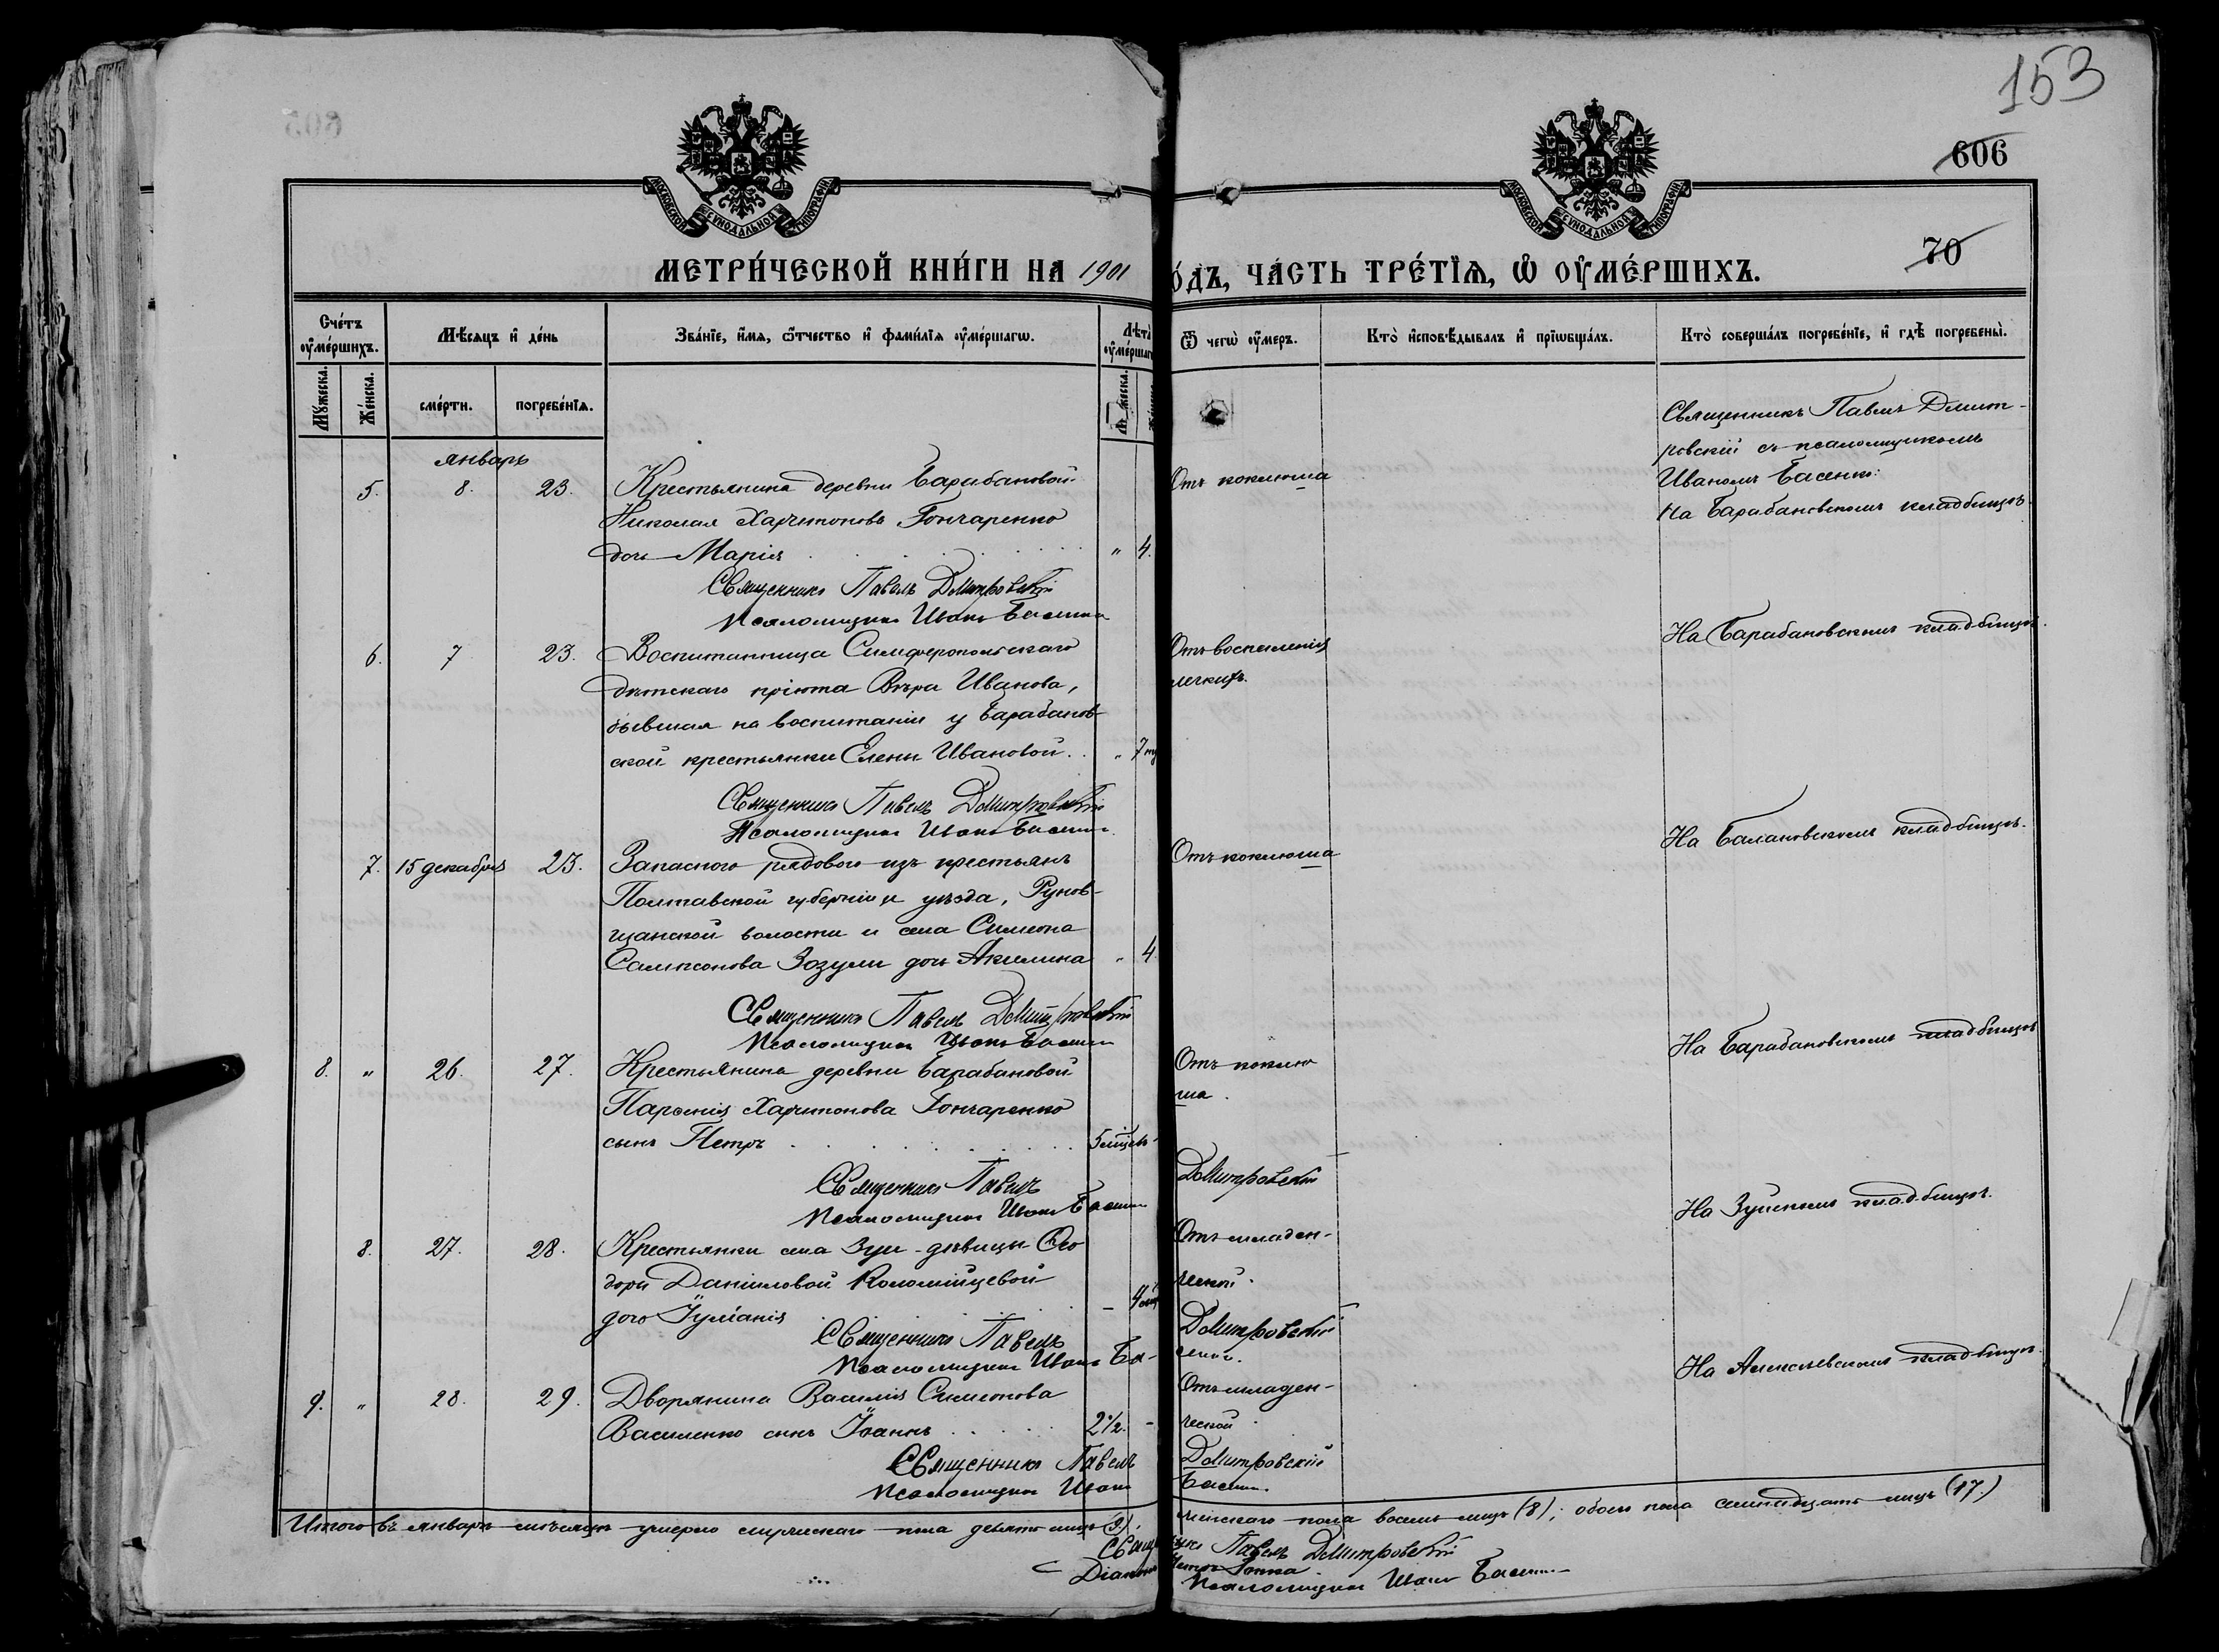 153
606
70
МОСКОВСКОЙ СѴНОДАЛЬНОЙ ТИПОГРАФІИ
МОСКОВСКОЙ СѴНОДАЛЬНОЙ ТИПОГРАФІИ
МЕТРИ́ЧЕСКОЙ КНИ́ГИ НА 1901
О́ДЪ, ЧА́СТЬ ТРЕ́ТІѦ, Ѡ ОУМЕ́РШИХЪ.
Сче́тъ оуме́ршихъ.
Мѣ́сѧцъ и де́нь
Зва́нїе, и́мѧ, ѻ́тчество и фами́лїѧ оуме́ршагѡ.
Лѣта̀ оуме́ршаг
Ѿ чегѡ̀ оу́меръ.
Кто̀ исповѣ́дывалъ и прїѡбща́лъ.
Кто̀ соверша́лъ погребе́нїе, и гдѣ̀ погребены̀.
Мꙋ́жеска.
Же́нска.
сме́рти.
погребе́нїѧ.
январь
5. 8. 23. Крестьянина деревни Барабановой
Николая Харитонова Гончаренко
дочь Марія " 4.
Отъ коклюша
Священникъ Павелъ Дмит-
ровскій съ псаломщикомъ
Иваномъ Басенко:
На Барабановскомъ кладбищѣ.
Священникъ Павелъ Дмитровскій
Псаломщикъ Иванъ
6. 7 23. Воспитанница Симферопольскаго
дѣтскаго пріюта Вѣра Иванова,
бывшая на воспитаніи у Барабанов-
ской крестьянки Елены Ивановой. " 7
Отъ воспаленія
легкихъ.
На Барабановскомъ кладбищѣ.
Священникъ Павелъ Дмитровскій
Псаломщикъ Иванъ
7. 15 декабря 23. Запасного рядового изъ крестьянъ
Полтавской губерніи и уѣзда, Рунов-
щанской волости и села Симеона
Сампсонова Зозули дочь Акилина " 4
Отъ коклюша
На Балановскомъ кладбищѣ.
Священникъ Павелъ Дмитровскій
Псаломщикъ Иванъ
8. " 26. 27. Крестьянина деревни Барабановой
Парѳенія Харитонова Гончаренко
сынъ Петръ 5
Отъ коклю
ша.
На Барабановскомъ кладбищѣ
Священникъ Павелъ Дмитровскій
Псаломщикъ Иванъ
8. 27. 28. Крестьянки села Зуи дѣвицы Ѳео
доры Даніиловой Коломійцевой
дочь Іуліанія - 4
Отъ младен-
ческой.
На Зуйскомъ кладбищѣ.
Священникъ Павелъ Дмитровскій
Псаломщикъ Иванъ Ба-
сенко.
9. " 28. 29. Дворянина Василія Симеонова
Василенко сынъ Іоаннъ 2½. -
Отъ младен-
ческой
На Алексѣевскомъ кладбищѣ.
Священникъ Павелъ Дмитровскій
Псаломщикъ Иванъ
Итого въ январѣ мѣсяцѣ умерло мужескаго пола девять лицъ (9), женскаго пола восемь лицъ (8); обоего пола семнадцать лицъ (17.)
Павелъ Дмитровскій
Псаломщикъ Иванъ